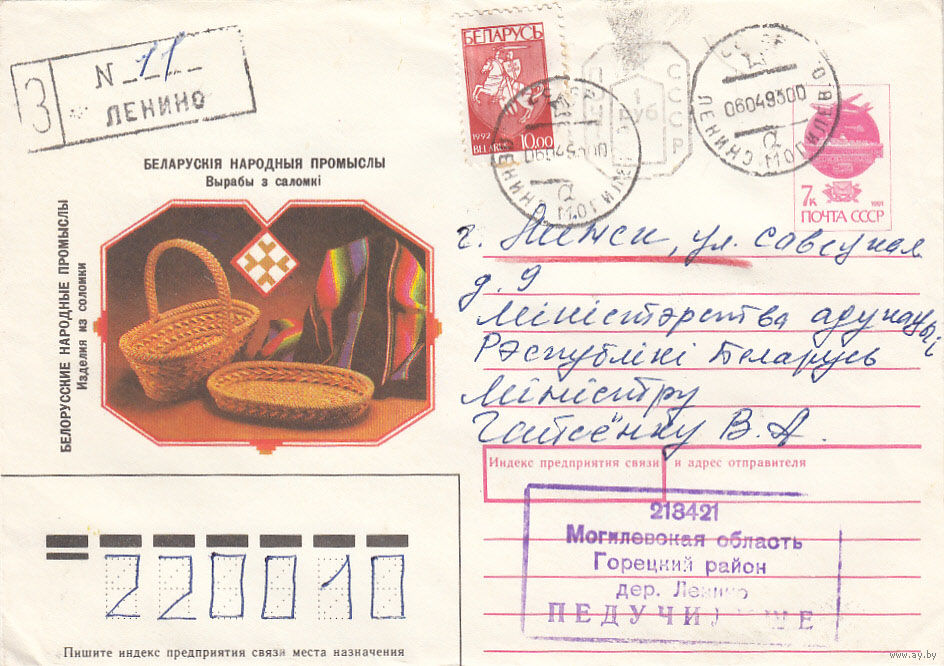 З
N 11
ЛЕНИНО
БЕЛАРУСЬ
1992
10.00
BELARUS
1
руб
СССР
СССР
06049300
ЛЕНИНО
МОГИЛЕВ
06049300
ЛЕНИНО
7к
1991
ПОЧТА СССР
БЕЛАРУСКІЯ НАРОДНЫЯ ПРОМЫСЛЫ
Вырабы з саломкі
БЕЛОРУССКИЕ НАРОДНЫЕ ПРОМЫСЛЫ
Изделия из соломки
г. Минск, ул. Савецкая
д. 9
Міністэрства адукацыі
Рэспублікі Беларусь
Міністру
Гайсёнку В. А.
Индекс предприятия связи и адрес отправителя
213421
Могилевская область
Горецкий район
дер. Ленино
ПЕДУЧИЛИЩЕ
220010
Пишите индекс предприятия связи места назначения
www.ay.by